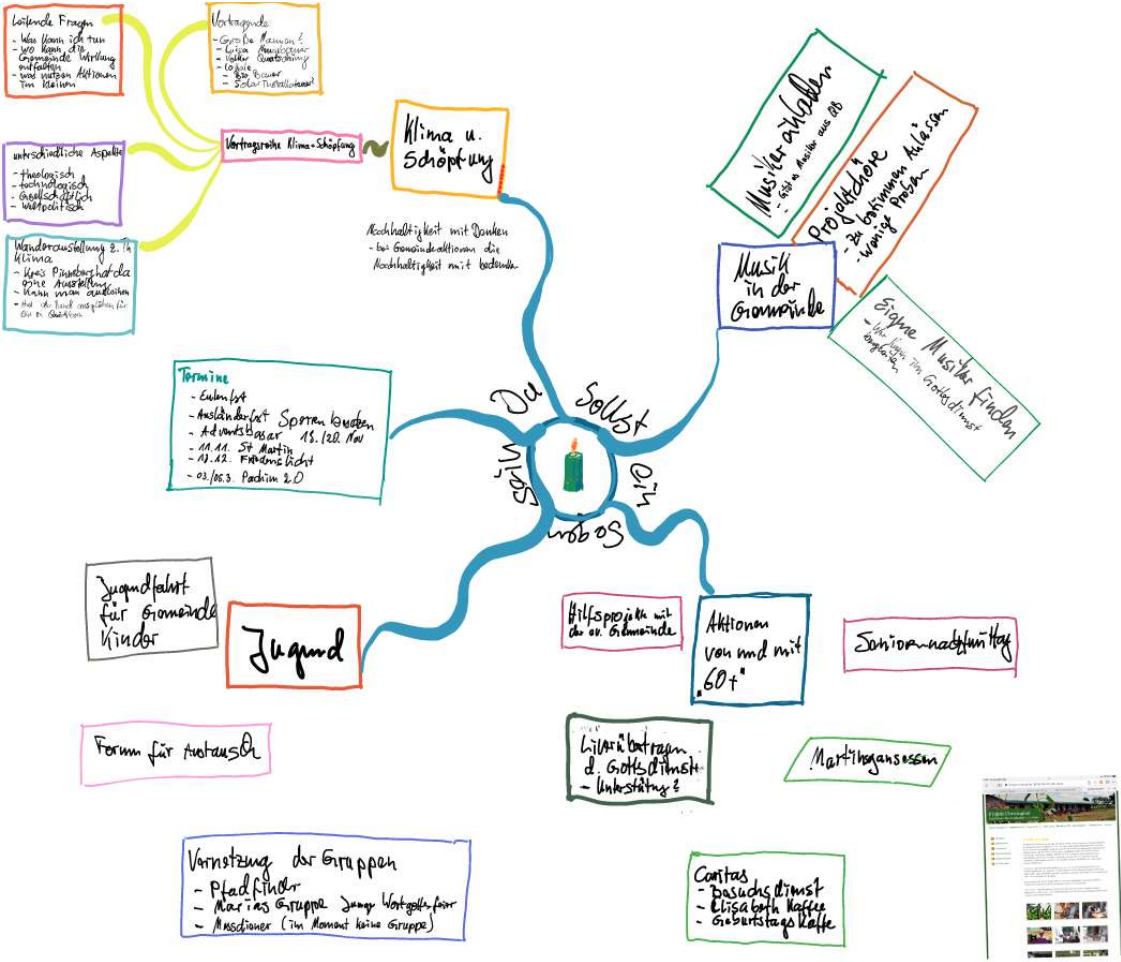 Leitende Fragen
- Was kann ich tun
- wo kann die
Gemeinde Wirkung
entfalten
- was nutzen Aktionen
im kleinen
Vortragende
- Große Namen?
- Luisa Neugebauer
- Volker Quaschning
- Lokale
- Bio Bauer
- Solar Installateur?
unterschiedliche Aspekte
- theologisch
- technologisch
- Gesellschaftlich
- weltpolitisch
Wanderausstellung z. Th
Klima
- Kreis Pinneberg hat da
eine Ausstellung
- Kann man ausleihen
Vortragsreihe Klima+Schöpfung
Klima u.
Schöpfung
Nachhaltigkeit mit Denken
- bei Gemeindeaktionen die
Nachhaltigkeit mit bedenken
Musiker einladen
- Gibt es Musiker aus QB
Projektchöre
- zu bestimmen Anlässen
- wenige Proben
Musik
in der
Gemeinde
Eigene Musiker finden
- im Gottesdienst
begleiten
Termine
- Eulenfest
- Ausländerfest Speeren
- Adventsbasar 19./20. Nov
- 11.11. St Martin
- Friedenslicht
- Parchim 2.0
Du
Sollst
ein
Segen
Sein
Jugendfahrt
für Gemeinde
Kinder
Jugend
Forum für Austausch
Vernetzung der Gruppen
- Pfadfinder
- Marias Gruppe Junge Wortgottesfeier
- Messdiener (im Moment keine Gruppe)
Hilfsprojekte mit
der ev. Gemeinde
Aktionen
von und mit
"60+"
Seniorennachmittag
Liveübertragen
d. Gottsdienste
- Unterstützung?
Martinsgansessen
Caritas
- Besuchsdienst
- Elisabeth Kaffee
- Geburtstags Kaffe